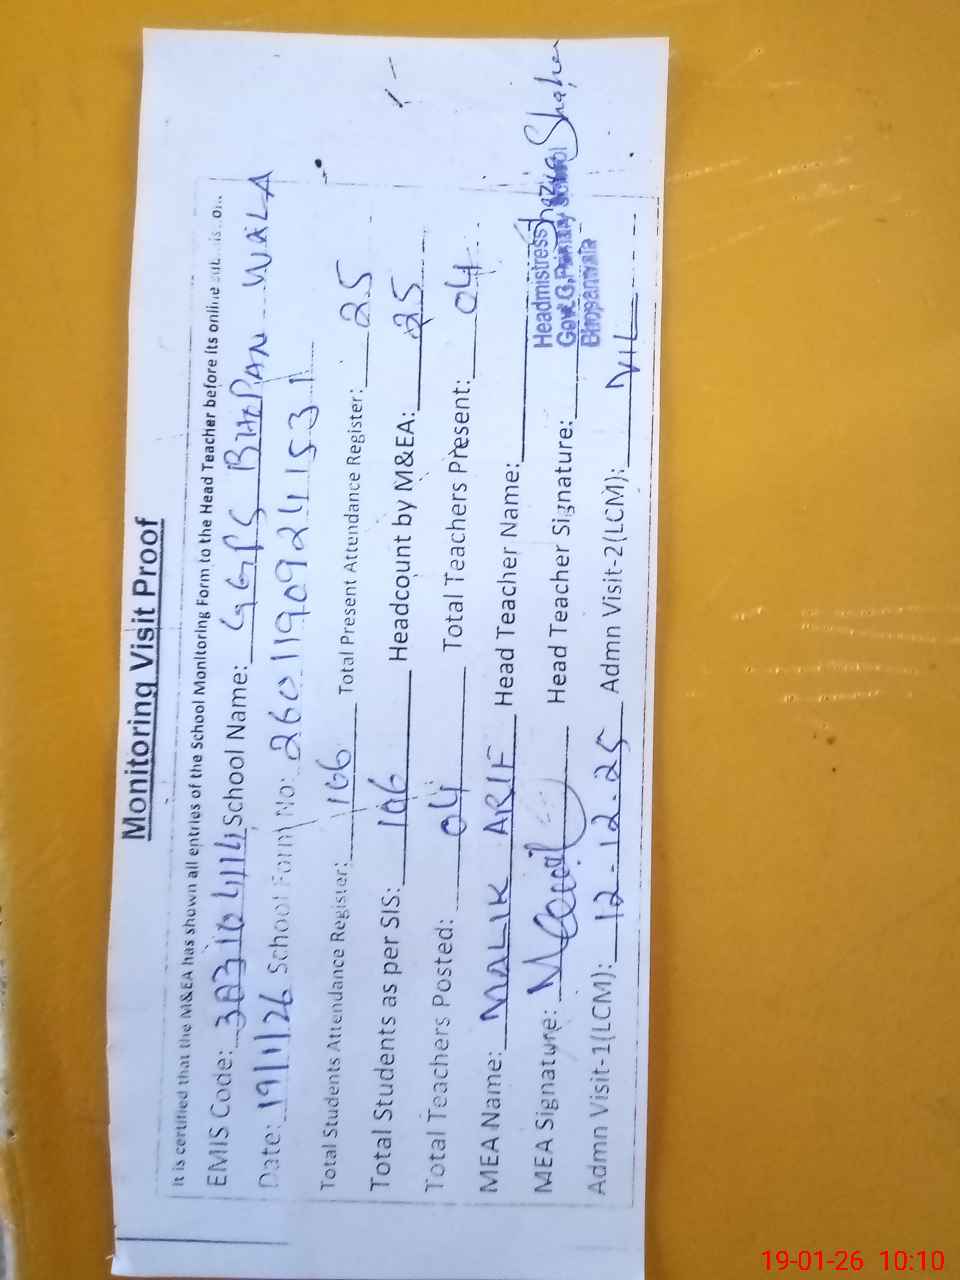 Monitoring Visit Proof
It is certified that the M&EA has shown all entries of the School Monitoring Form to the Head Teacher before its online
EMIS Code: 38310414 School Name: GGPS BHOPAN WALA
Date: 19/1/26 School Form No: 26011909241531
Total Students Attendance Register: 166 Total Present Attendance Register: 25
Total Students as per SIS: 166 Headcount by M&EA: 25
Total Teachers Posted: 04 Total Teachers Present: 04
MEA Name: MALIK ARIF Head Teacher Name: Shazia Shaheen
MEA Signature: Head Teacher Signature:
Headmistress
Govt. G. Primary School
Bhopanwala
Admn Visit-1(LCM): 12-12-25 Admn Visit-2(LCM): NIL
19-01-26 10:10